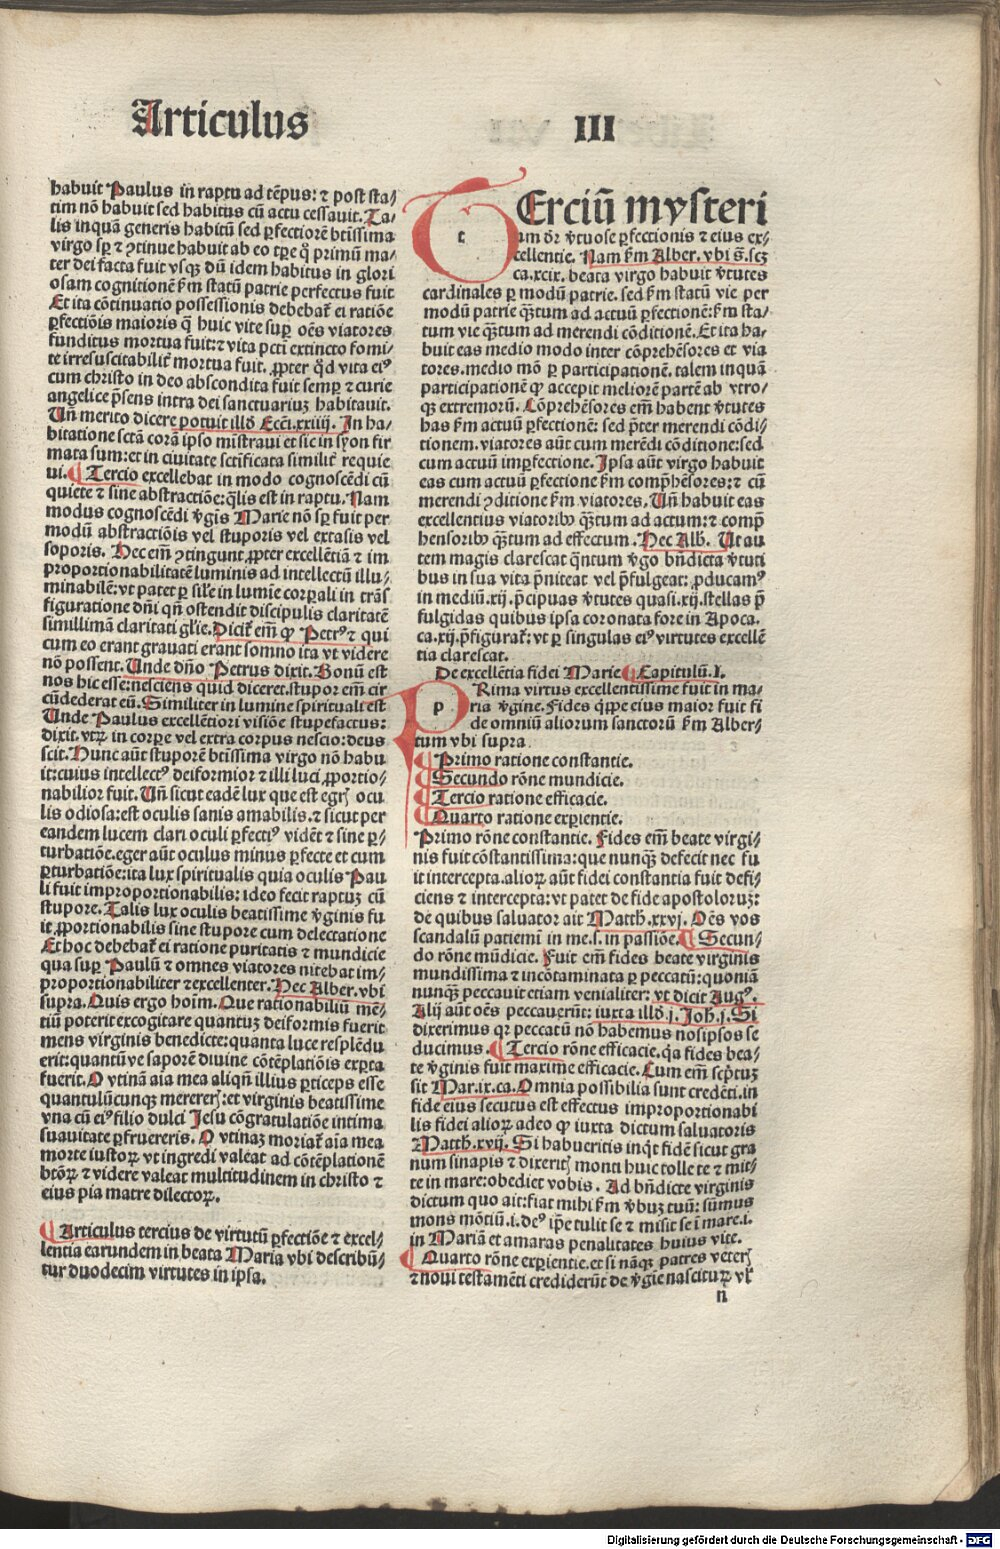 Articulus III
habuit Paulus in raptu ad tēpus: ⁊ post sta⸗
tim nō habuit sed habitus cū actu cessauit. Ta⸗
lis inquā generis habitū sed ꝑfectiorē btissima
virgo sꝑ ⁊ ꝯtinue habuit ab eo tꝑe q̊ primū ma⸗
ter dei facta fuit vsq; dū idem habitus in glori
osam cognitionē km̄ statū patrie perfectus fuit
Et ita cōtinuatio possessionis debebat̄ ei ratiōe
ꝑfectiōis maioris q̄ huic vite suꝑ oēs viatores
funditus mortua fuit: ⁊ vita pcti extincto fomi⸗
te irresuscitabilit̄ mortua fuit. ꝓpter qd̓ vita eiꝰ
cum christo in deo abscondita fuit semꝑ ⁊ curie
angelice p̄sens intra dei sanctuariuꝫ habitauit.
Un̄ merito dicere potuit illd̓ Ecci. xxiiij. In ha⸗
bitatione sctā corā ipso mīstraui et sic in syon fir
mata sum: et in ciuitate sctificata similit̄ requie
ui. ¶ Tercio excellebat in modo cognoscēdi cū
quiete ⁊ sine abstractiōe: q̄lis est in raptu. Nam
modus cognoscēdi v̓gīs Marie nō sꝑ fuit per
modū abstractiōis vel stuporis vel extasis vel
soporis. Hec em̄ ꝯtingunt ꝓpter excellētiā ⁊ im
proportionabilitatē luminis ad intellectū illu⸗
minabilē: vt patet ꝑ sil̄e in lumīe corꝑali in trās
figuratione dn̄i qn̄ ostendit discipulis claritatē
simillimā claritati gl̄ie. Dicit̄ em̄ ꝙ Petrꝰ ⁊ qui
cum eo erant grauati erant somno ita vt videre
nō possent. Unde dn̄o Petrus dixit. Bonū est
nos hic esse: nesciens quid diceret. stupor em̄ cir
cūdederat eū. Similiter in lumine spirituali est
Unde Paulus excellētiori visiōe stupefactus:
dixit. vtꝝ in corpe vel extra corpus nescio: deus
scit. Nunc aūt stuporē btissima virgo nō habu
it: cuius intellectꝰ deiformior ⁊ illi luci ꝓportio⸗
nabilior fuit. Un̄ sicut eadē lux que est egrꝭ ocu
lis odiosa: est oculis sanis amabilis. ⁊ sicut per
eandem lucem clari oculi ꝑfectiꝰ vidēt ⁊ sine ꝑ⸗
turbatiōe. eger aūt oculus minus ꝑfecte et cum
ꝑturbatiōe: ita lux spiritualis quia oculis Pau
li fuit improportionabilis: ideo fecit raptuꝫ cū
stupore. Talis lux oculis beatissime v̓ginis fu
it ꝓportionabilis sine stupore cum delectatione
Et hoc debebat̄ ei ratione puritatis ⁊ mundicie
qua suꝑ Paulū ⁊ omnes viatores nitebat im⸗
proportionabiliter ⁊ excellenter. Hec Alber. vbi
supra. Quis ergo hoīm. Que rationabiliū mē⸗
tiū poterit excogitare quantuꝫ deiformis fuerit
mens virginis benedicte: quanta luce resplēdu
erit: quantū ve saporē diuine cōtēplatiōis exꝑta
fuerit. O vtinā aīa mea aliqn̄ illius ꝑticeps esse
quantulūcunq; mererer ꝛ: et virginis beatissime
vna cū eiꝰ filio dulci Jesu cōgratulatiōe intima
suauitate ꝑfruereris. O vtinaꝫ moriat̄ aīa mea
morte iustoꝝ vt ingredi valeat ad cōtēplationē
btōꝝ ⁊ videre valeat multitudinem in christo ⁊
eius pia matre dilectoꝝ.
¶ Articulus tercius de virtutū ꝑfectiōe ⁊ excel⸗
lentia earundem in beata Maria vbi describū⸗
tur duodecim virtutes in ipsa.
TErciū mysteri
um dr̄ v̓tuose ꝑfectionis ⁊ eius ex⸗
cellentie. Nam km̄ Alber. vbi s̄. scꝫ
ca. xcix. beata virgo habuit v̓tutes
cardinales ꝑ modū patrie. sed km̄ statū vie per
modū patrie qȝtum ad actuū ꝑfectionē: km̄ sta⸗
tum vie qȝtum ad merendi cōditionē. Et ita ha⸗
buit eas medio modo inter cōprehēsores et via
tores. medio mō ꝑ participationē. talem inquā
participationē ꝙ accepit meliorē partē ab vtro⸗
q; extremorū. Cōprehēsores em̄ habent v̓tutes
has km̄ actuū ꝑfectionē: sed p̄ter merendi cōdi⸗
tionem. viatores aūt cum merēdi cōditione: sed
cum actuū imꝑfectione. Ipsa aūt virgo habuit
eas cum actuū ꝑfectione km̄ comp̄hēsores: ⁊ cū
merendi ꝯditione km̄ viatores. Un̄ habuit eas
excellentius viatoribꝰ qȝtum ad actum: ⁊ comp̄
hensoribꝰ qȝtum ad effectum. Hec Alb̓. Ut au
tem magis clarescat qn̄tum v̓go bn̄dicta v̓tuti
bus in sua vita p̄niteat vel p̄fulgeat: ꝓducamꝰ
in mediū. xij. p̄cipuas v̓tutes quasi. xij. stellas p̄
fulgidas quibus ipsa coronata fore in Apoca.
ca. xij. p̄figurat̄: vt ꝑ singulas eiꝰ virtutes excellē
tia clarescat.
De excellētia fidei Marie ¶ Capitulū. I.
PRima virtus excellentissime fuit in ma⸗
ria v̓gine. Fides q̄ppe eius maior fuit fi
de omniū aliorum sanctorū km̄ Alber⸗
tum vbi supra.
¶ Primo ratione constantie.
¶ Secundo rōne mundicie.
¶ Tercio ratione efficacie.
¶ Quarto ratione exꝑientie.
Primo rōne constantie. Fides em̄ beate virgi⸗
nis fuit cōstantissima: que nunq̄ȝ defecit nec fu
it intercepta. alioꝝ aūt fidei constantia fuit defi⸗
ciens ⁊ intercepta: vt patet de fide apostoloruꝫ:
de quibus saluator ait Matth. xxvj. Oēs vos
scandalū patiemī in me. s. in passiōe. ¶ Secun⸗
do rōne mūdicie. Fuit em̄ fides beate virginis
mundissima ⁊ incōtaminata ꝑ peccatū: quoniā
nunq̄ȝ peccauit etiam venialiter: vt dicit Augꝰ.
Alij aūt oēs peccauerūt: iuxta illd̓. j. Joh̓. j. Si
dixerimus qꝛ peccatū nō habemus nosipsos se
ducimus. ¶ Tercio rōne efficacie. qa fides bea⸗
te v̓ginis fuit maxime efficacie. Cum em̄ scp̄tuꝫ
sit Mar. ix. ca. Omnia possibilia sunt credēti. in
fide eius secutus est effectus improportionabi
lis fidei alioꝝ adeo ꝙ iuxta dictum saluatoris
Matth. xvij. Si habueritis inq̇t fidē sicut gra
num sinapis ⁊ dixeritꝭ monti huic tolle te ⁊ mit⸗
te in mare: obediet vobis. Ad bn̄dicte virginis
dictum quo ait: fiat mihi km̄ v̓buꝫ tuū: sūmus
mons mōtiū. i. deꝰ ip̄e tulit se ⁊ misit se ī mare. i.
in Mariā et amaras penalitates huius vite.
¶ Quarto rōne exꝑientie. et si nāq; patres veterꝭ
⁊ noui testamēti crediderūt de v̓gie nascituꝝ vl̓
n
Digitalisierung gefördert durch die Deutsche Forschungsgemeinschaft - DFG